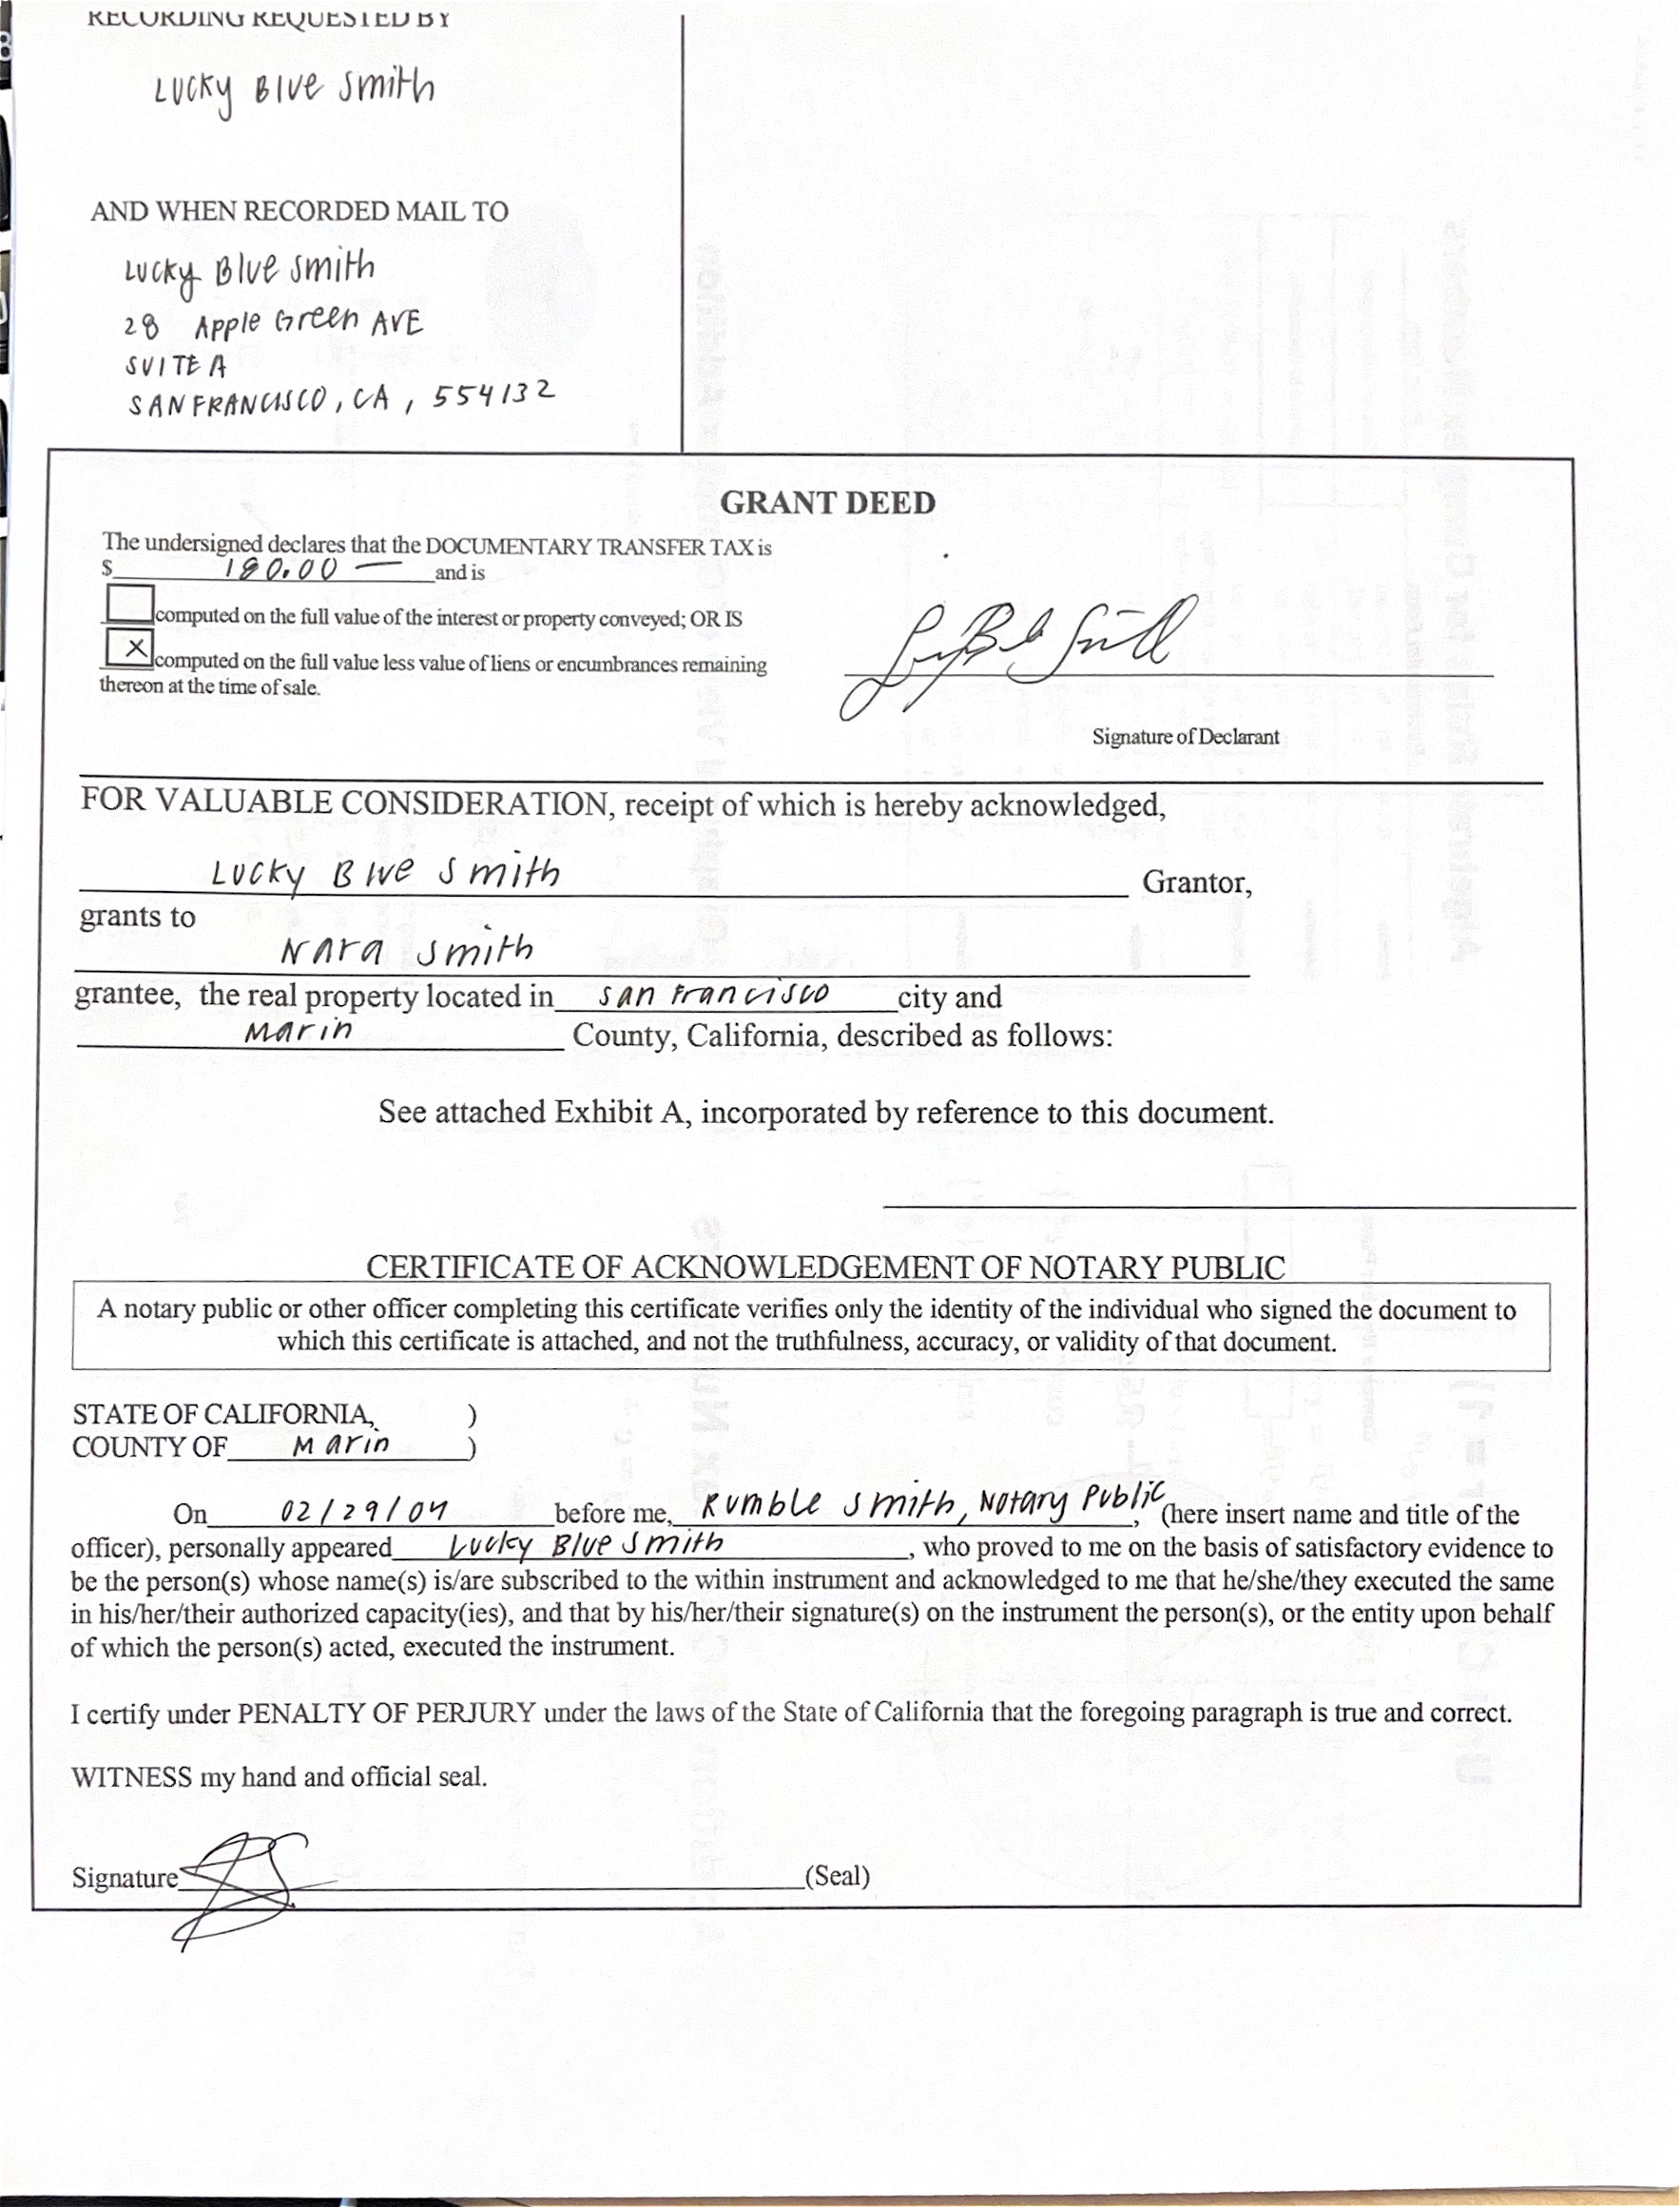 RECORDING REQUESTED BY
Lucky Blue Smith
AND WHEN RECORDED MAIL TO
Lucky Blue Smith
28 Apple Green AVE
SUITE A
SAN FRANCISCO, CA, 554132
GRANT DEED
The undersigned declares that the DOCUMENTARY TRANSFER TAX is
$ 180.00 — and is
computed on the full value of the interest or property conveyed; OR IS
X computed on the full value less value of liens or encumbrances remaining
thereon at the time of sale.
Signature of Declarant
FOR VALUABLE CONSIDERATION, receipt of which is hereby acknowledged,
Lucky Blue Smith Grantor,
grants to
Nara Smith
grantee, the real property located in San Francisco city and
Marin County, California, described as follows:
See attached Exhibit A, incorporated by reference to this document.
CERTIFICATE OF ACKNOWLEDGEMENT OF NOTARY PUBLIC
A notary public or other officer completing this certificate verifies only the identity of the individual who signed the document to
which this certificate is attached, and not the truthfulness, accuracy, or validity of that document.
STATE OF CALIFORNIA, )
COUNTY OF Marin )
On 02/29/04 before me, Rumble Smith, Notary Public, (here insert name and title of the
officer), personally appeared Lucky Blue Smith, who proved to me on the basis of satisfactory evidence to
be the person(s) whose name(s) is/are subscribed to the within instrument and acknowledged to me that he/she/they executed the same
in his/her/their authorized capacity(ies), and that by his/her/their signature(s) on the instrument the person(s), or the entity upon behalf
of which the person(s) acted, executed the instrument.
I certify under PENALTY OF PERJURY under the laws of the State of California that the foregoing paragraph is true and correct.
WITNESS my hand and official seal.
Signature (Seal)